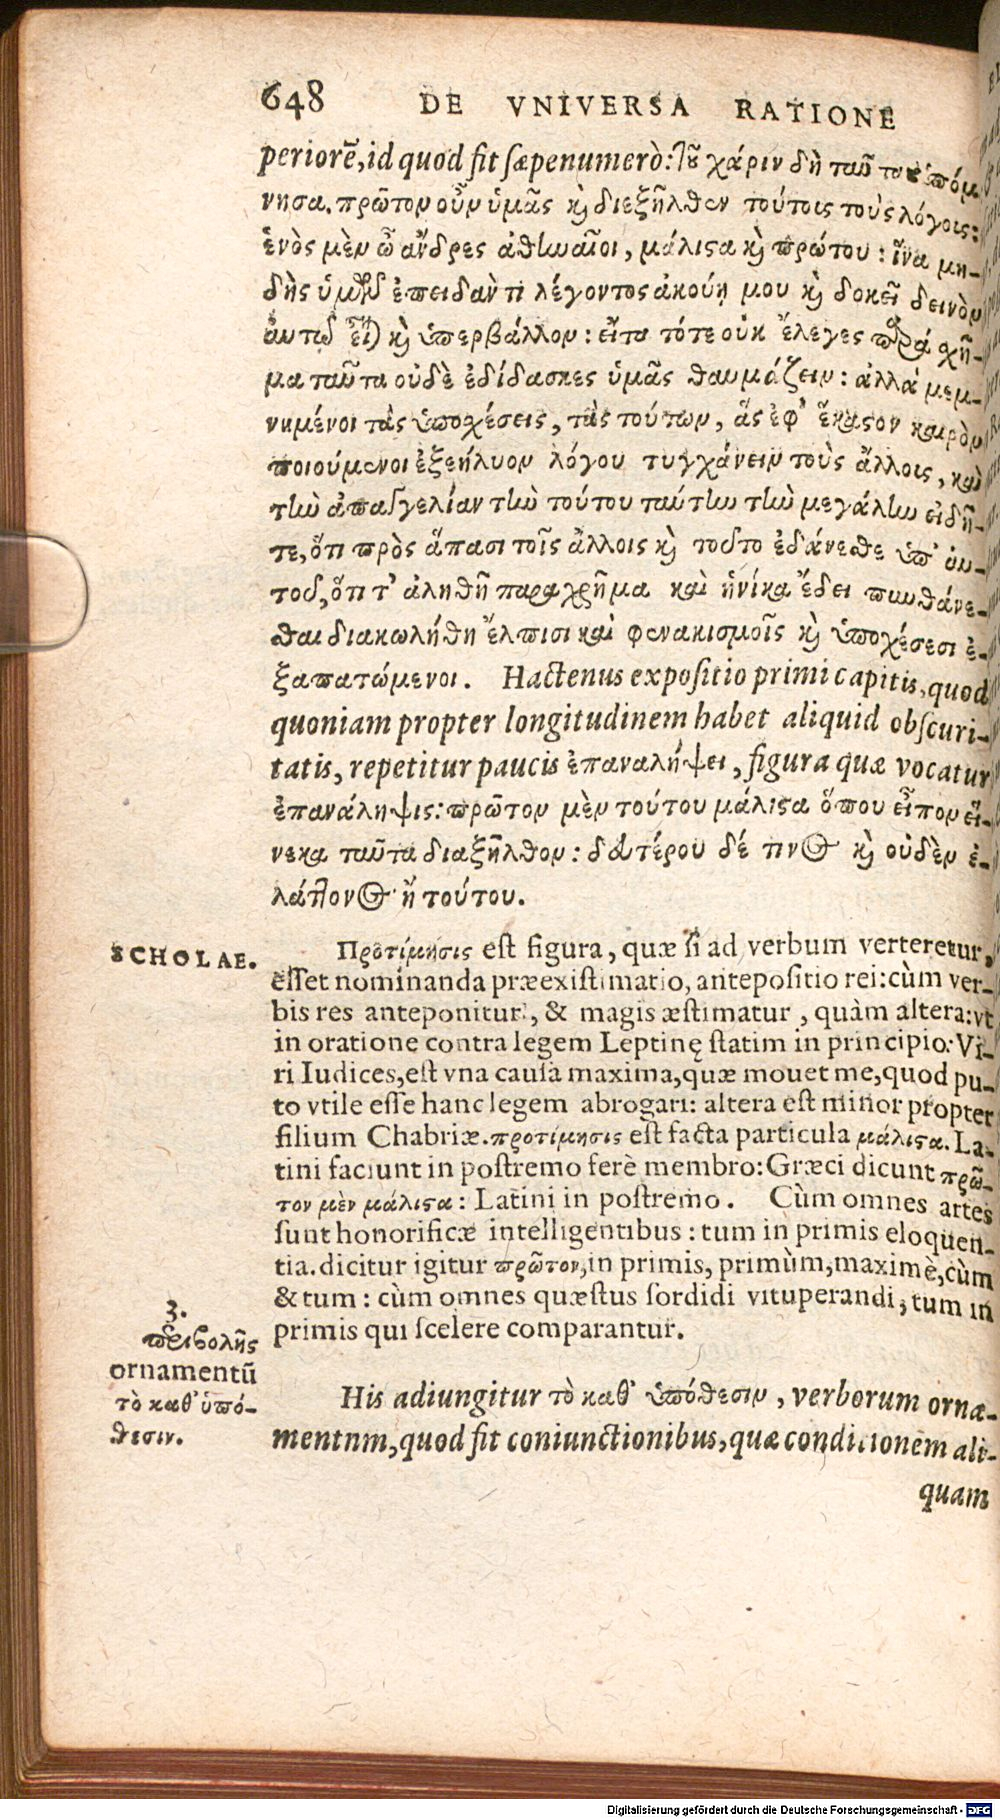 648 DE VNIVERSA RATIONE
periorẽ, id quod fit sæpenumerò: Τοῦ χάριν δὴ ταῦτα ὑπόμ
νησα. πρῶτον οὖν ὑμᾶς κὶ διεξῆλθον τούτοις τοὺς λόγοις:
ἑνὸς μὲν ὦ ἄνδρες ἀθηναῖοι, μάλιστα κὶ πρώτου: ἵνα μη-
δῆς ὑμῶν ἐπειδάν τι λέγοντος ἀκούῃ μου κὶ δοκεῖ δεινὸν
αὐτῷ εἶ) κὶ ὑπερβάλλον: εἶτα τότε οὐκ ἔλεγες παραχῆ-
μα ταῦτα οὐδὲ ἐδίδασκες ὑμᾶς θαυμάζειν: ἀλλὰ μεμ-
νημένοι τὰς ὑποχέσεις, τὰς τούτων, ἃς ἐφ' ἕκαστον καιρὸν
ποιούμενοι ἐξεήλυον λόγου τυγχάνειν τοὺς ἄλλοις, καὶ
τὴν ἀπαγγελίαν τὴν τούτου ταύτην τὴν μεγάλην εἰδῆ-
τε, ὅτι πρὸς ἅπασι τοῖς ἄλλοις κὶ τοῦτο ἐδάνεθε ὑπ' αὐ-
τοῦ, ὅτι τ' ἀληθῆ παραχρῆμα καὶ ἡνίκα ἔδει πυνθάνε-
θαι διακωλήθη ἔλπισι καὶ φενακισμοῖς κὶ ὑποχέσεσι ἐ-
ξαπατώμενοι. Hactenus expositio primi capitis, quod
quoniam propter longitudinem habet aliquid obscuri-
tatis, repetitur paucis ἐπαναλήψει, figura quæ vocatur
ἐπανάληψις: πρῶτον μὲν τούτου μάλιστα ὅπου εἶπον εἵ-
νεκα ταῦτα διαξῆλθον: δευτέρου δέ τινος κὶ οὐδὲν ἐ-
λάττονος ἢ τούτου.
SCHOLAE.
Προτίμησις est figura, quæ si ad verbum verteretur,
esset nominanda præexistimatio, antepositio rei: cùm ver-
bis res anteponitur, & magis æstimatur, quàm altera: vt
in oratione contra legem Leptinę statim in principio: Vi-
ri Iudices, est vna causa maxima, quæ mouet me, quod pu-
to vtile esse hanc legem abrogari: altera est minor propter
filium Chabriæ. προτίμησις est facta particula μάλιστα. La-
tini faciunt in postremo ferè membro: Græci dicunt πρῶ-
τον μὲν μάλιστα: Latini in postremo. Cùm omnes artes
sunt honorificæ intelligentibus: tum in primis eloquen-
tia. dicitur igitur πρῶτον, in primis, primùm, maximè, cùm
& tum: cùm omnes quæstus sordidi vituperandi, tum in
primis qui scelere comparantur.
3.
περιβολῆς
ornamentũ
τὸ καθ' ὑπό-
θεσιν.
His adiungitur τὸ καθ' ὑπόθεσιν, verborum orna-
mentnm, quod fit coniunctionibus, quæ condicionem ali-
quam
Digitalisierung gefördert durch die Deutsche Forschungsgemeinschaft - DFG